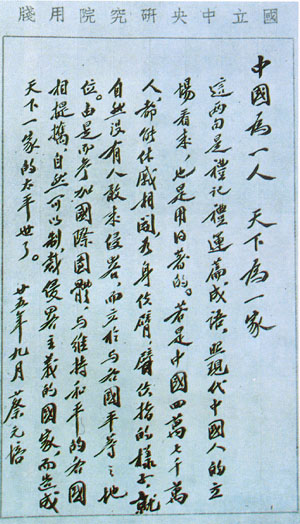 國立中央研究院用牋
中國為一人　天下為一家
這兩句是禮記禮運篇成語，照現代中國人的立
場看來，也是用得著的。若是中國四萬七千萬
人，都能休戚相關，如身使臂，臂使指的樣子，就
自然沒有人敢來侵畧，而立於與各國平等之地
位。由是而參加國際團體，與維持和平的各國
相提攜，自然可以制裁侵畧主義的國家，而造成
天下一家的太平世了。
廿五年九月 蔡元培